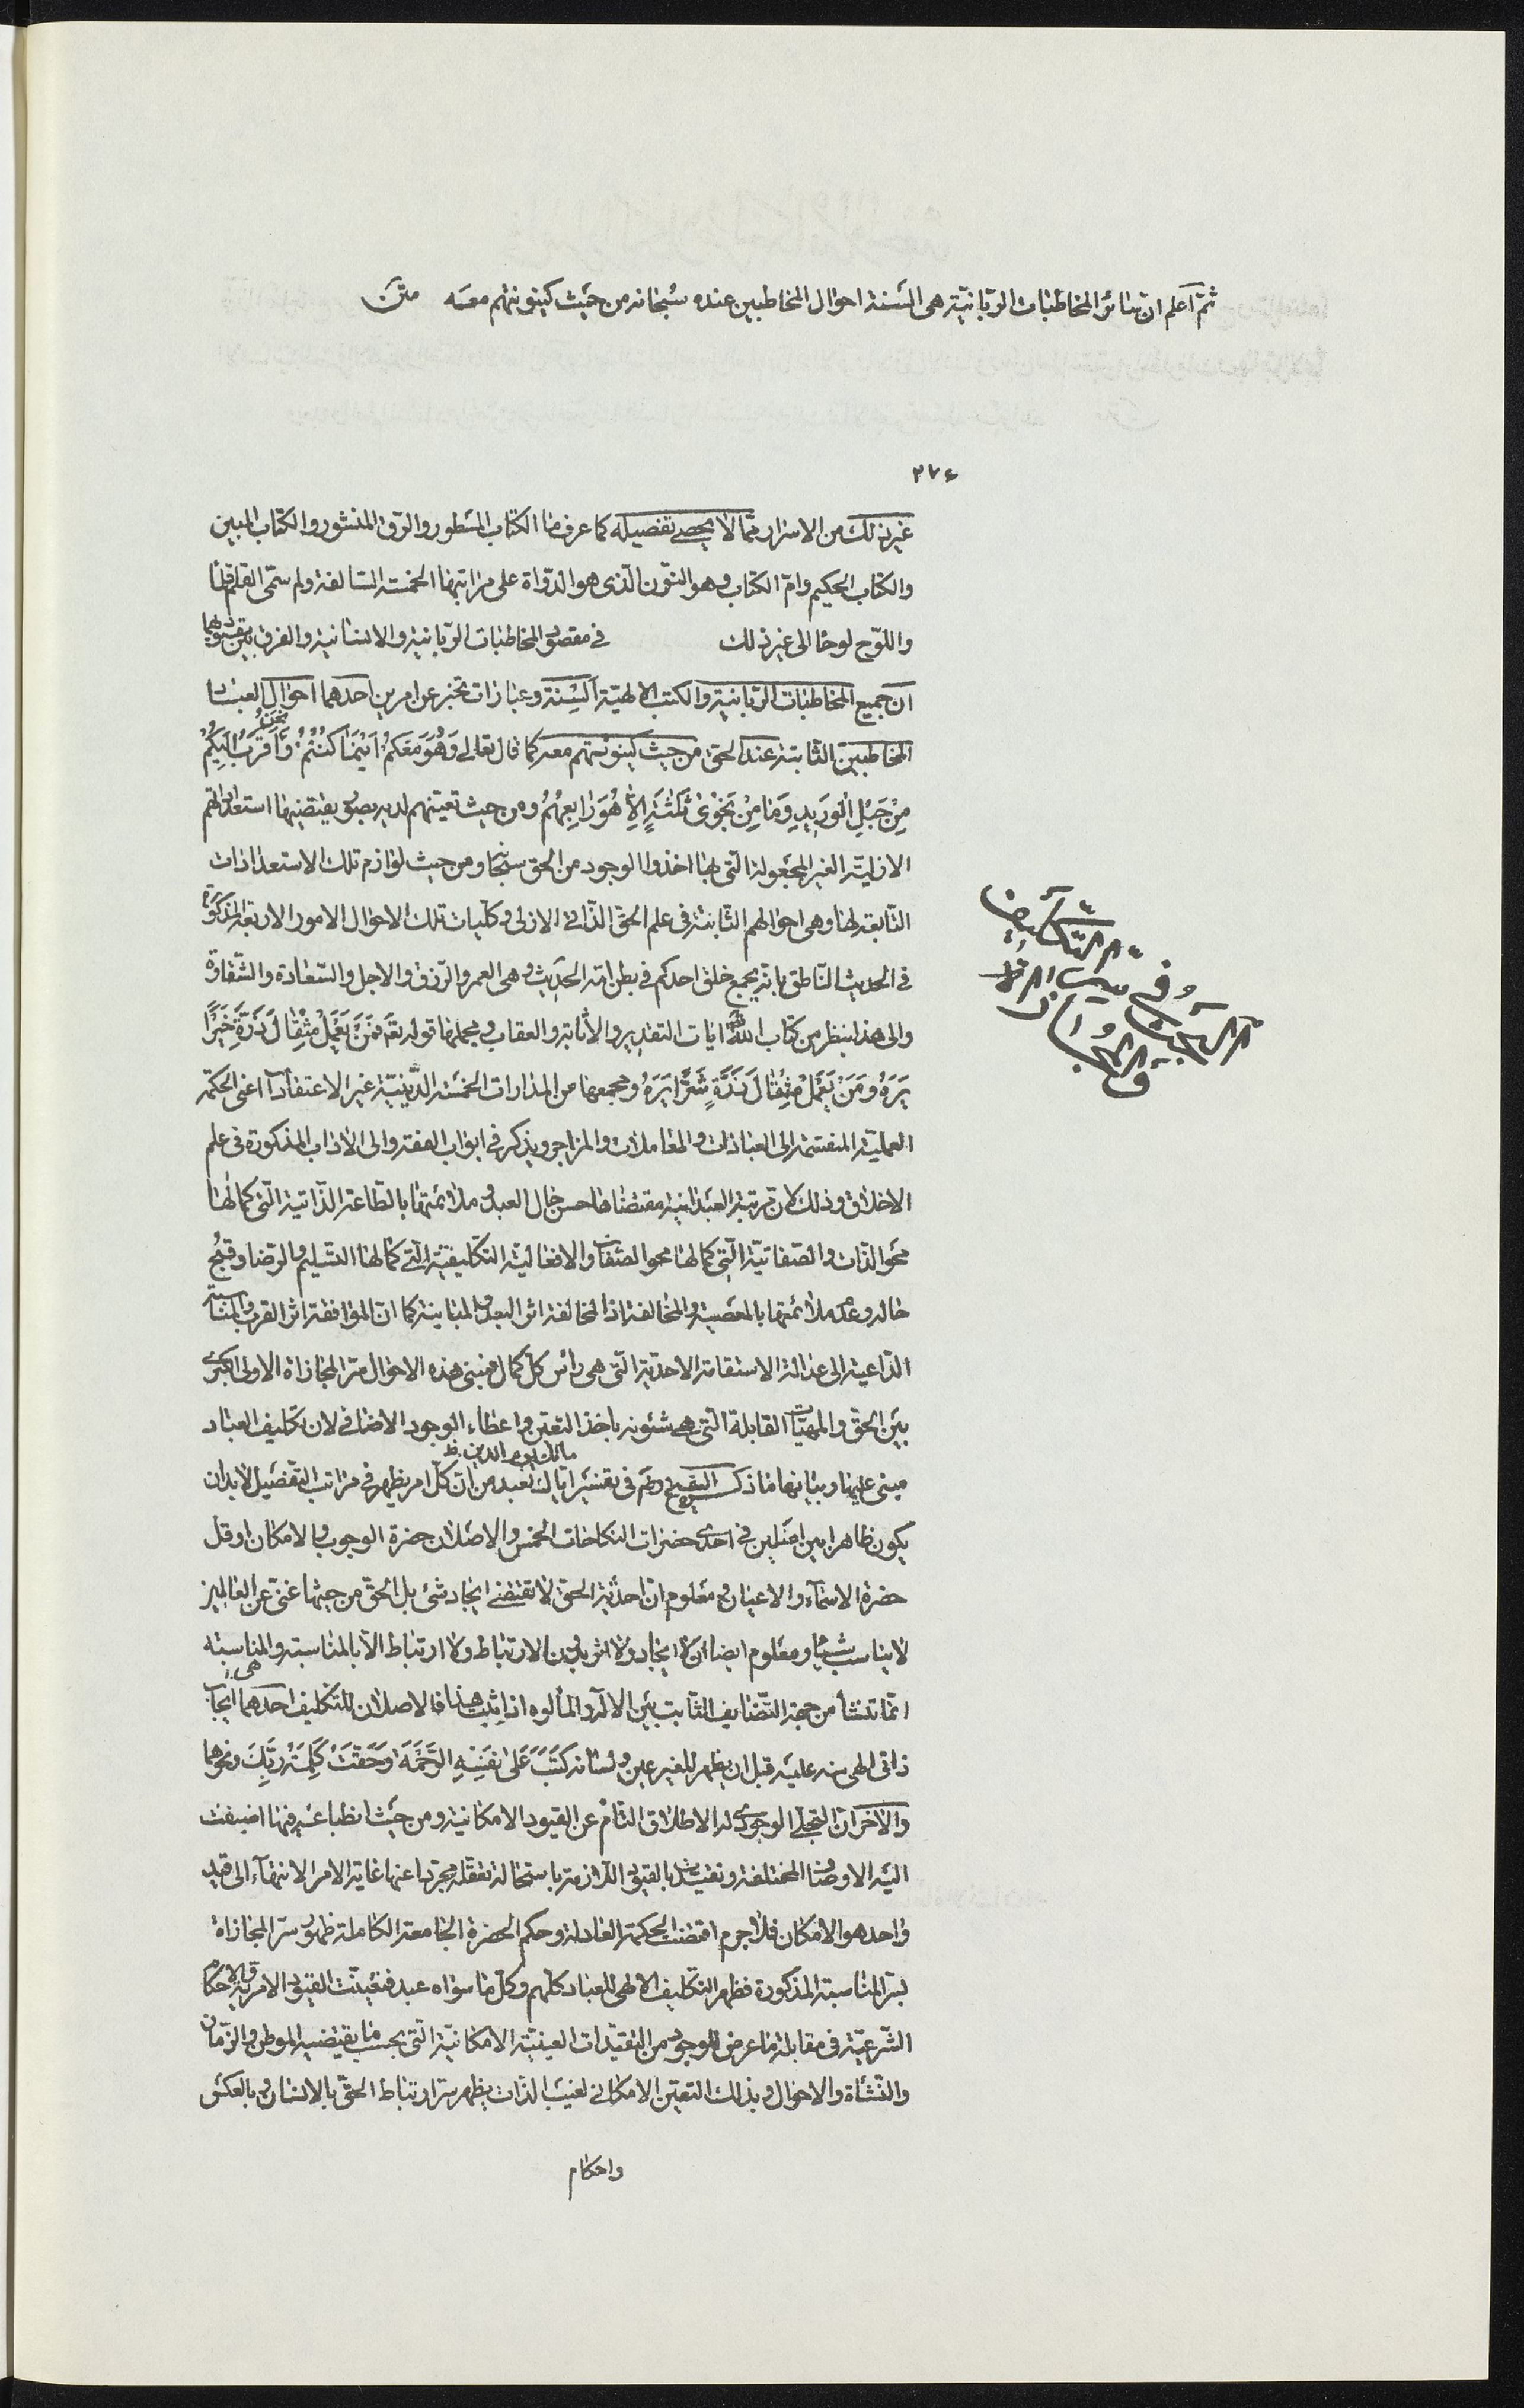 ثمّ اعلم ان سائر المخاطبات الربّانيّة هى السنة احوال المخاطبين عنده سبحانه من حيث كينونتهم معه متن
٢٧٤
غير ذلك من الاسرار ممّا لا يحصى تفصيله كما عرف منا الكتاب المسطور والرّق المنشور والكتاب المبين
والكتاب الحكيم وامّ الكتاب وهو النّون الّذى هو الدّواة على مراتبها الخمسة السّالفة ولم سمّى القلم قلما
واللوح لوحا الى غير ذلك في مقصود المخاطبات الرّبانية والانسانية والفرق بين قيودهما
ان جميع المخاطبات الرّبانية والكتب الالهيّة السنة وعبارات تخبر عن امرين احدهما احوال العباد
المخاطبين الثابتة عند الحق من حيث كينونتهم معه كما قال تعالى وَهُوَ مَعَكُمْ اَيْنَمَا كُنْتُمْ وَنَحْنُ اَقْرَبُ اِلَيْكُمْ
مِنْ حَبْلِ الْوَرِيدِ وَمَا مِنْ نَجْوىٰ ثَلٰثَةٍ اِلّا هُوَ رَابِعُهُمْ ومن حيث تعيّنهم لديه بصور يقتضيها استعداداتهم
الازليّة الغير المجعولة الّتى بها اخذوا الوجود من الحق سبحانه ومن حيث لوازم تلك الاستعدادات
التّابعة لها وهى احوالهم الثابتة فى علم الحقّ الذاتى الازلى وكلّيات تلك الاحوال الامور الاربعة المذكورة
فى الحديث النّاطق بانّه يجمع خلق احدكم فى بطن امّه الحديث وهى العمر والرّزق والاجل والسّعادة والشّقاوة
والى هذا ينظر من كتاب اللّٰه ايات التقدير والاثابة والعقاب ومجملها قوله تع فَمَنْ يَعْمَلْ مِثْقَالَ ذَرَّةٍ خَيْرًا
يَرَهُ وَمَنْ يَعْمَلْ مِثْقَالَ ذَرَّةٍ شَرًّا يَرَهُ ومجمعها من المدارات الخمسة الدّينيّة غير الاعتقادات اعنى الحكمة
العمليّة المنقسمة الى العبادات والمعاملات والمزاجر ويذكر فى ابواب الفقه والى الاداب المذكورة فى علم
الاخلاق وذلك لان مرتبة العبدانية مقتضاها حسن حال العبد وملائمتها بالطّاعة الذّاتية الّتى كمالها
محو الذّات والصّفاتيّة الّتى كمالها محو الصّفات والافعاليّة التكليفيّة الّتى كمالها التّسليم والرّضا وقبح
حاله وعدم ملائمتها بالمعصية والمخالفة اذ المخالفة اثر البعد والمباينة كما انّ الموافقة اثر القرب والمناسبة
الدّاعية الى عدالة الاستقامة الاحديّة الّتى هى رأس كل كمال فمبنى هذه الاحوال سرّ المجازاة الاولى الكبرى
بين الحقّ والمهيّات القابلة الّتى هى شئونه باخذ التعيّن واعطاء الوجود الاضافى لان تكليف العباد
مالك يوم الدين ظ
مبنى عليها وبيانها ما ذكر الشيخ رض فى تفسير ايّاك نعبد من انّ كلّ امر يظهر فى مراتب التّفصيل لابد ان
يكون ظاهرا بين اصلين فى احدى حضرات النكاحات الخمس والاصلان حضرة الوجوب والامكان او قل
حضرة الاسمآء والاعيان ومعلوم انّ احديّة الحق لا تقتضى ايجاد شئ بل الحقّ من حيثها غنىّ عن العالمين
لا يناسب شيئا ومعلوم ايضا ان لا ايجاد ولا اثر بدون الارتباط ولا ارتباط الّا بالمناسبة والمناسبة
انّما تنشأ من جهة التّضايف الثّابت بين الاله والمألوه اذا ثبت هذا فالاصلان للتكليف احدهما ايجاب
ذاتى الهى منه عليه قبل ان يظهر للغير عين ولسانه كَتَبَ عَلىٰ نَفْسِهِ الرَّحْمَةَ وَحَقَّتْ كَلِمَةُ رَبِّكَ ونحوهما
والاخر ان التجلّى الوجودى له الاطلاق التّامّ عن القيود الامكانية ومن حيث انطباعه فيها اضيفت
اليه الاوصاف المختلفة وتقيّد بالقيود اللّازمة باستحالة تعقّله مجردا عنها غاية الامر الانتهآء الى قيد
واحد هو الامكان فلا جرم اقتضت الحكمة العادلة وحكم الحضرة الجامعة الكاملة ظهور سرّ المجازاة
بسرّ المناسبة المذكورة فظهر التكليف الالهى للعباد كلّهم وكلّ ما سواه عبد فتعيّنت القيود الامرية والاحكام
الشّرعيّة فى مقابلة ما عرض للوجود من التقيّدات العينيّة الامكانيّة الّتى بحسب ما يقتضيه الموطن والزّمان
والنّشأة والاحوال وبذلك التعيّن الامكانى لغيب الذّات يظهر سرّ ارتباط الحقّ بالانسان وبالعكس
واحكام